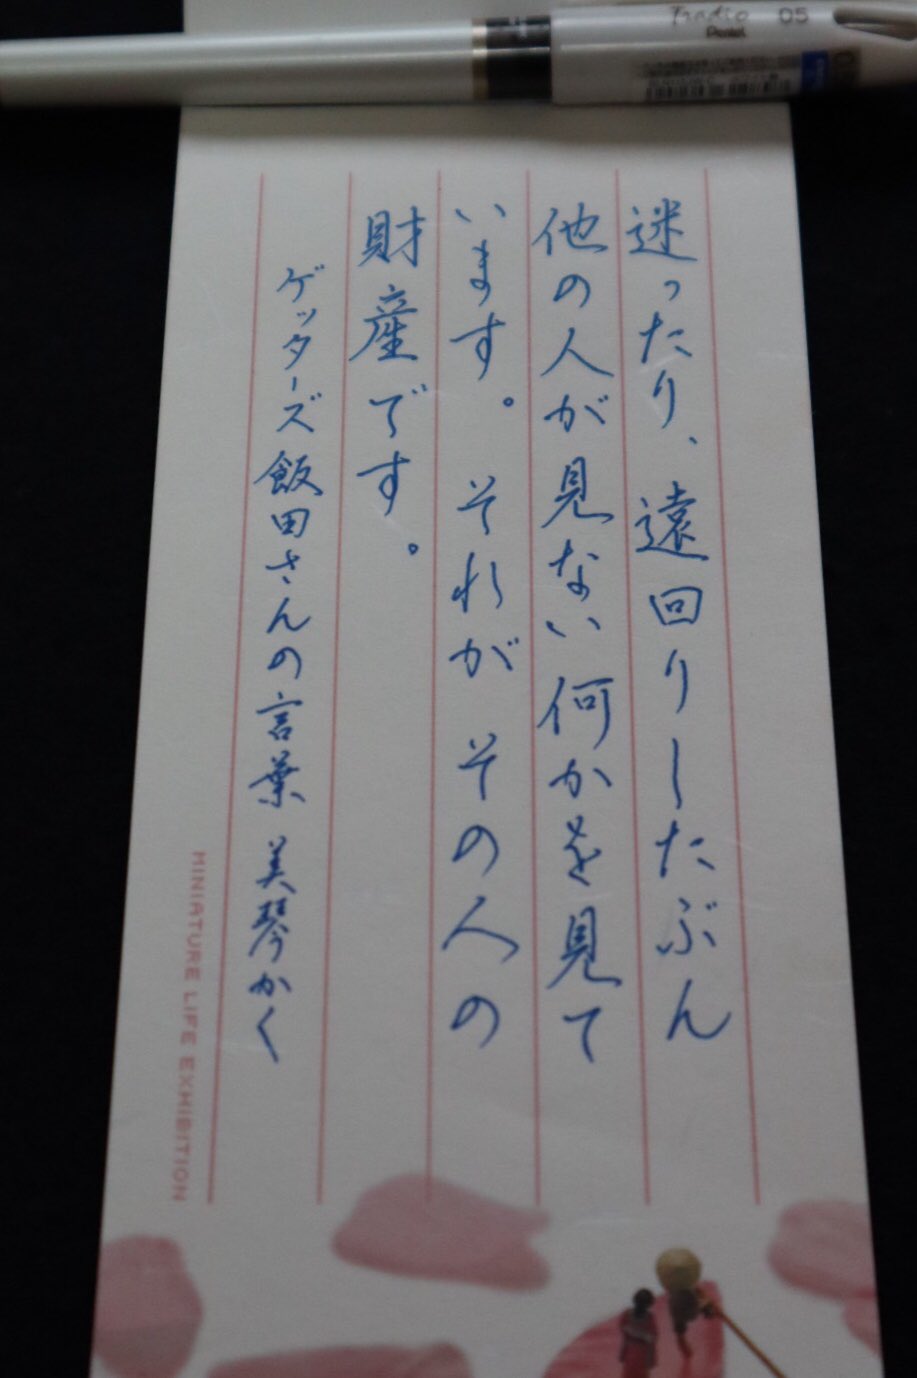 Tradio 05
Pentel
迷ったり、遠回りしたぶん
他の人が見ない何かを見て
います。それが その人の
財産です。
ゲッターズ飯田さんの言葉 美琴かく
MINIATURE LIFE EXHIBITION